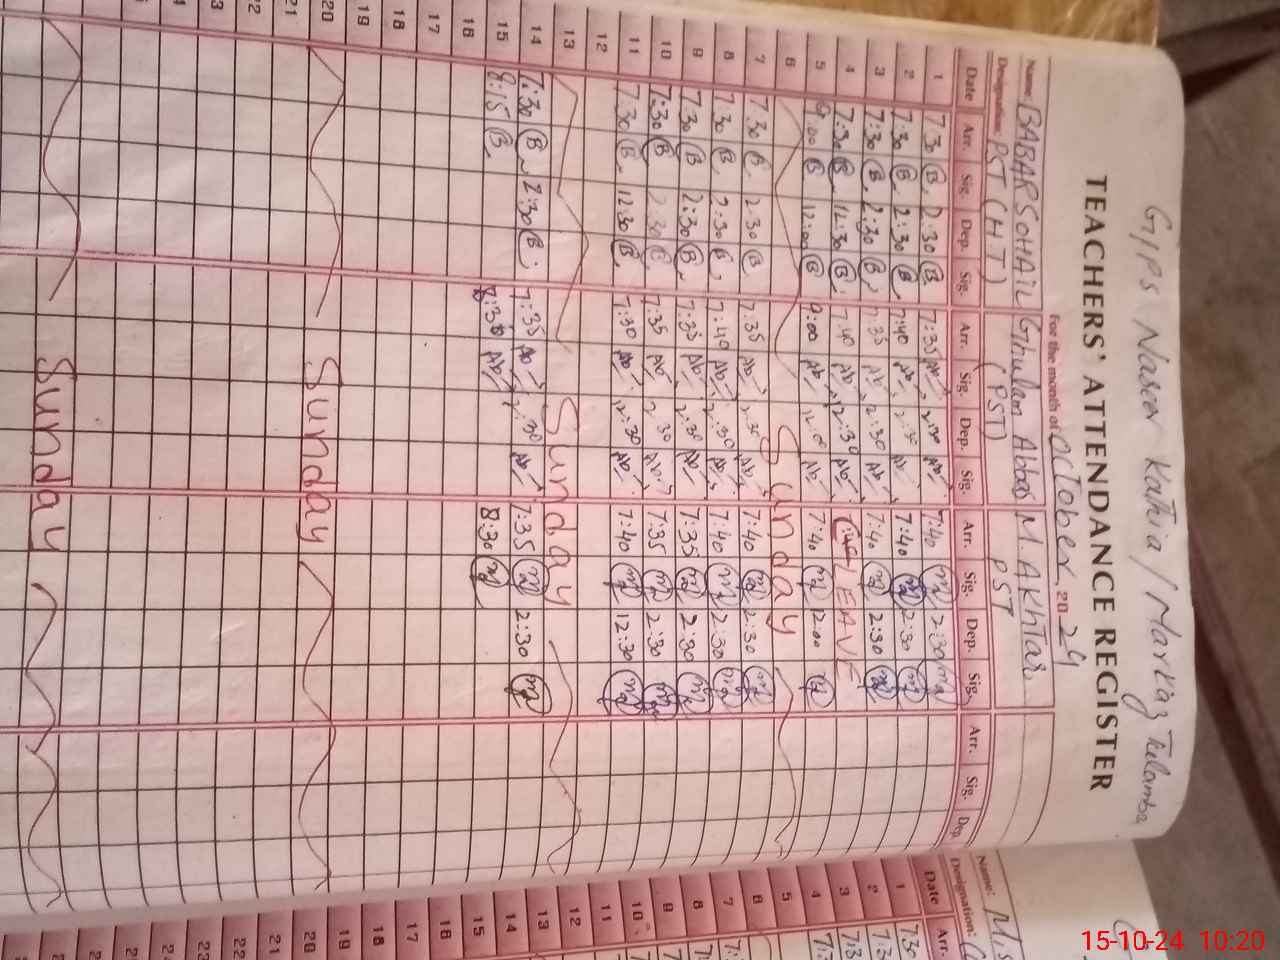 G/PS Naseer Kathia / Markaz Tulamba
TEACHERS' ATTENDANCE REGISTER
For the month of October 2024
Name: BABAR SOHAIL Ghulam Abbas M. AKhtar
Designation: PST (HT) (PST) PST
Date Arr. Sig. Dep. Sig. Arr. Sig. Dep. Sig. Arr. Sig. Dep. Sig. Arr. Sig. Dep.
1 7:30 B 2:30 B 7:35 Ab 2:30 Ab 7:40 2:30
2 7:30 B 2:30 B 7:40 Ab 2:30 Ab 7:40 2:30
3 7:30 B 2:30 B 7:35 Ab 2:30 Ab 7:40 2:30
4 7:30 B 12:30 B 7:40 Ab 2:30 Ab LEAVE
5 9:00 B 12:00 B 9:00 Ab 12:00 Ab 7:40 12:00
6 Sunday
7 7:30 B 2:30 B 7:35 Ab 2:30 Ab 7:40 2:30
8 7:30 B 2:30 B 7:40 Ab 2:30 Ab 7:40 2:30
9 7:30 B 2:30 B 7:35 Ab 2:30 Ab 7:35 2:30
10 7:30 B 2:30 B 7:35 Ab 2:30 Ab 7:35 2:30
11 7:30 B 12:30 B 7:30 Ab 12:30 Ab 7:40 12:30
12
13 Sunday
14 7:30 B 2:30 B 7:35 Ab 2:30 Ab 7:35 2:30
15 8:15 B 8:30 Ab 8:30
16
17
18
19
20 Sunday
21
22
Sunday
Name: M.
Designation:
Date Arr.
1 7:30
2
3
4
5
6
7
8
9
10
11
12
13
14
15
16
17
18
19
20
21
22
23
15-10-24 10:20